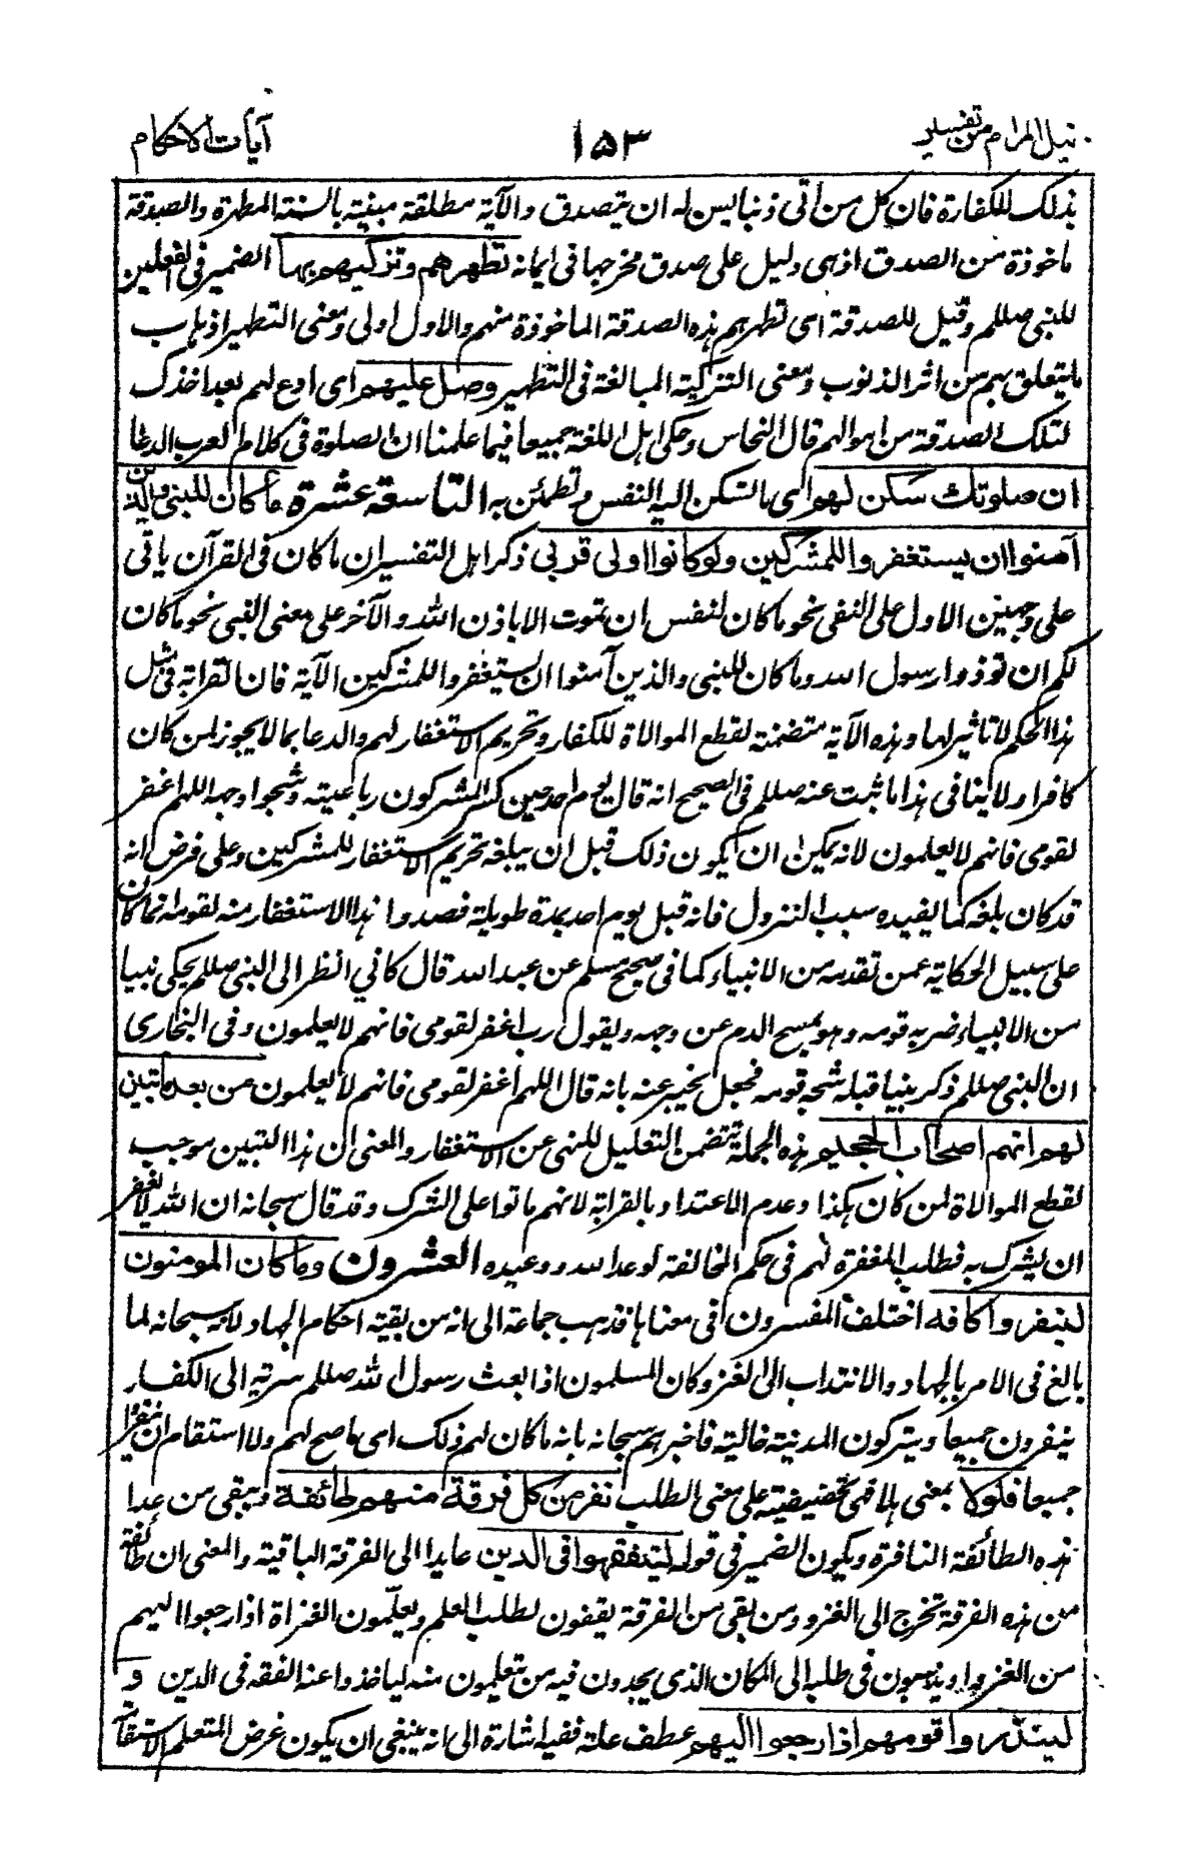 نيل المرام من تفسير ١٥٣ آيات الاحكام
بذلك للكفارة فان كل من اتى ذنبا ليس له ان يتصدق والآية مطلقة مبنية بالسنة المطهرة والصدقة
ماخوذة من الصدق اذ هى دليل على صدق مخرجها فى ايمانه تطهرهم وتزكيهم بها الضمير فى الفعلين
للنبى صللم وقيل للصدقة اى تطهرهم هذه الصدقة الماخوذة منهم والاول اولى ومعنى التطهير اذهاب
ما يتعلق بهم من اثر الذنوب ومعنى التزكية المبالغة فى التطهير وصل عليهم اى ادع لهم بعد اخذك
لتلك الصدقة من اموالهم قال النحاس وحكى اهل اللغة جميعا فيما علمنا ان الصلوة فى كلام العرب الدعا
ان صلوتك سكن لهم اى ما تسكن اليه النفس وتطمئن به التاسعة عشرة ما كان للنبى والذين
آمنوا ان يستغفروا للمشركين ولو كانوا اولى قربى ذكر اهل التفسير ان ما كان فى القرآن ياتى
على وجهين الاول على النفى نحو ما كان لنفس ان تموت الا باذن الله والآخر على معنى النهى نحو ما كان
لكم ان توذوا رسول الله وما كان للنبى والذين آمنوا ان يستغفروا للمشركين الآية فان القرابة فى مثل
هذا الحكم لا تاثير لها وهذه الآية متضمنة لقطع الموالاة للكفار وتحريم الاستغفار لهم والدعا بما لا يجوز لمن كان
كافرا ولا ينافى هذا ما ثبت عنه صللم فى الصحيح انه قال يوم احد حين كسر المشركون رباعيته وشجوا وجهه اللهم اغفر
لقومى فانهم لا يعلمون لانه يمكن ان يكون ذلك قبل ان يبلغه تحريم الاستغفار للمشركين وعلى فرض انه
قد كان بلغه كما يفيده سبب النزول فانه قبل يوم احد بمدة طويلة فصدوا هذا الاستغفار منه لقومه انما كان
على سبيل الحكاية عمن تقدمه من الانبياء كما فى صحيح مسلم عن عبد الله قال كانى انظر الى النبى صللم يحكى نبيا
من الانبياء ضربه قومه وهو يمسح الدم عن وجهه ويقول رب اغفر لقومى فانهم لا يعلمون وفى البخارى
ان النبى صللم ذكر نبيا قبله شجه قومه فجعل يخبر عنه بانه قال اللهم اغفر لقومى فانهم لا يعلمون من بعد ما تبين
لهم انهم اصحاب الجحيم هذه الجملة تتضمن التعليل للنهى عن الاستغفار والمعنى ان هذا التبين موجب
لقطع الموالاة لمن كان هكذا وعدم الاعتداد بالقرابة لانهم ماتوا على الشرك وقد قال سبحانه ان الله لا يغفر
ان يشرك به فطلب المغفرة لهم فى حكم المخالفة لوعد الله ووعيده العشرون وما كان المومنون
لينفروا كافه اختلف المفسرون فى معناها فذهب جماعة الى انه من بقية احكام الجهاد لانه سبحانه لما
بالغ فى الامر بالجهاد والانتداب الى الغزو كان المسلمون اذا بعث رسول الله صللم سرية الى الكفار
ينفرون جميعا ويتركون المدينة خالية فاخبرهم سبحانه بانه ما كان لهم ذلك اى ما صح لهم ولا استقام ان ينفروا
جميعا فلولا بمعنى هلا فهى تحضيضية على معنى الطلب نفر من كل فرقة منهم طائفة ويبقى من عدا
هذه الطائفة النافرة ويكون الضمير فى قوله ليتفقهوا فى الدين عايدا الى الفرقة الباقية والمعنى ان طائفة
من هذه الفرقة تخرج الى الغزو ومن بقى من الفرقة يقفون لطلب العلم ويعلمون الغزاة اذا رجعوا اليهم
من الغزو او يذهبون فى طلبه الى المكان الذى يجدون فيه من يتعلمون منه لياخذوا عنه الفقه فى الدين و
لينذروا قومهم اذا رجعوا اليهم عطف علة ففيه اشارة الى انه ينبغى ان يكون غرض المتعلم الاستقامة